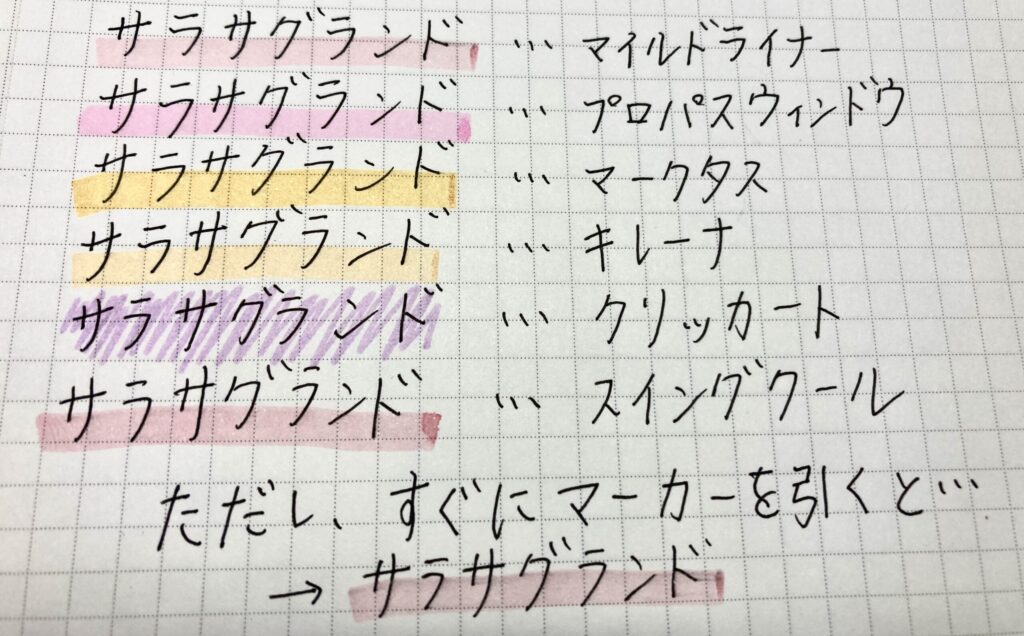 サラサグランド … マイルドライナー
サラサグランド … プロパスウィンドウ
サラサグランド … マークタス
サラサグランド … キレーナ
サラサグランド … クリッカート
サラサグランド … スイングクール
ただし、すぐにマーカーを引くと…
→ サラサグランド